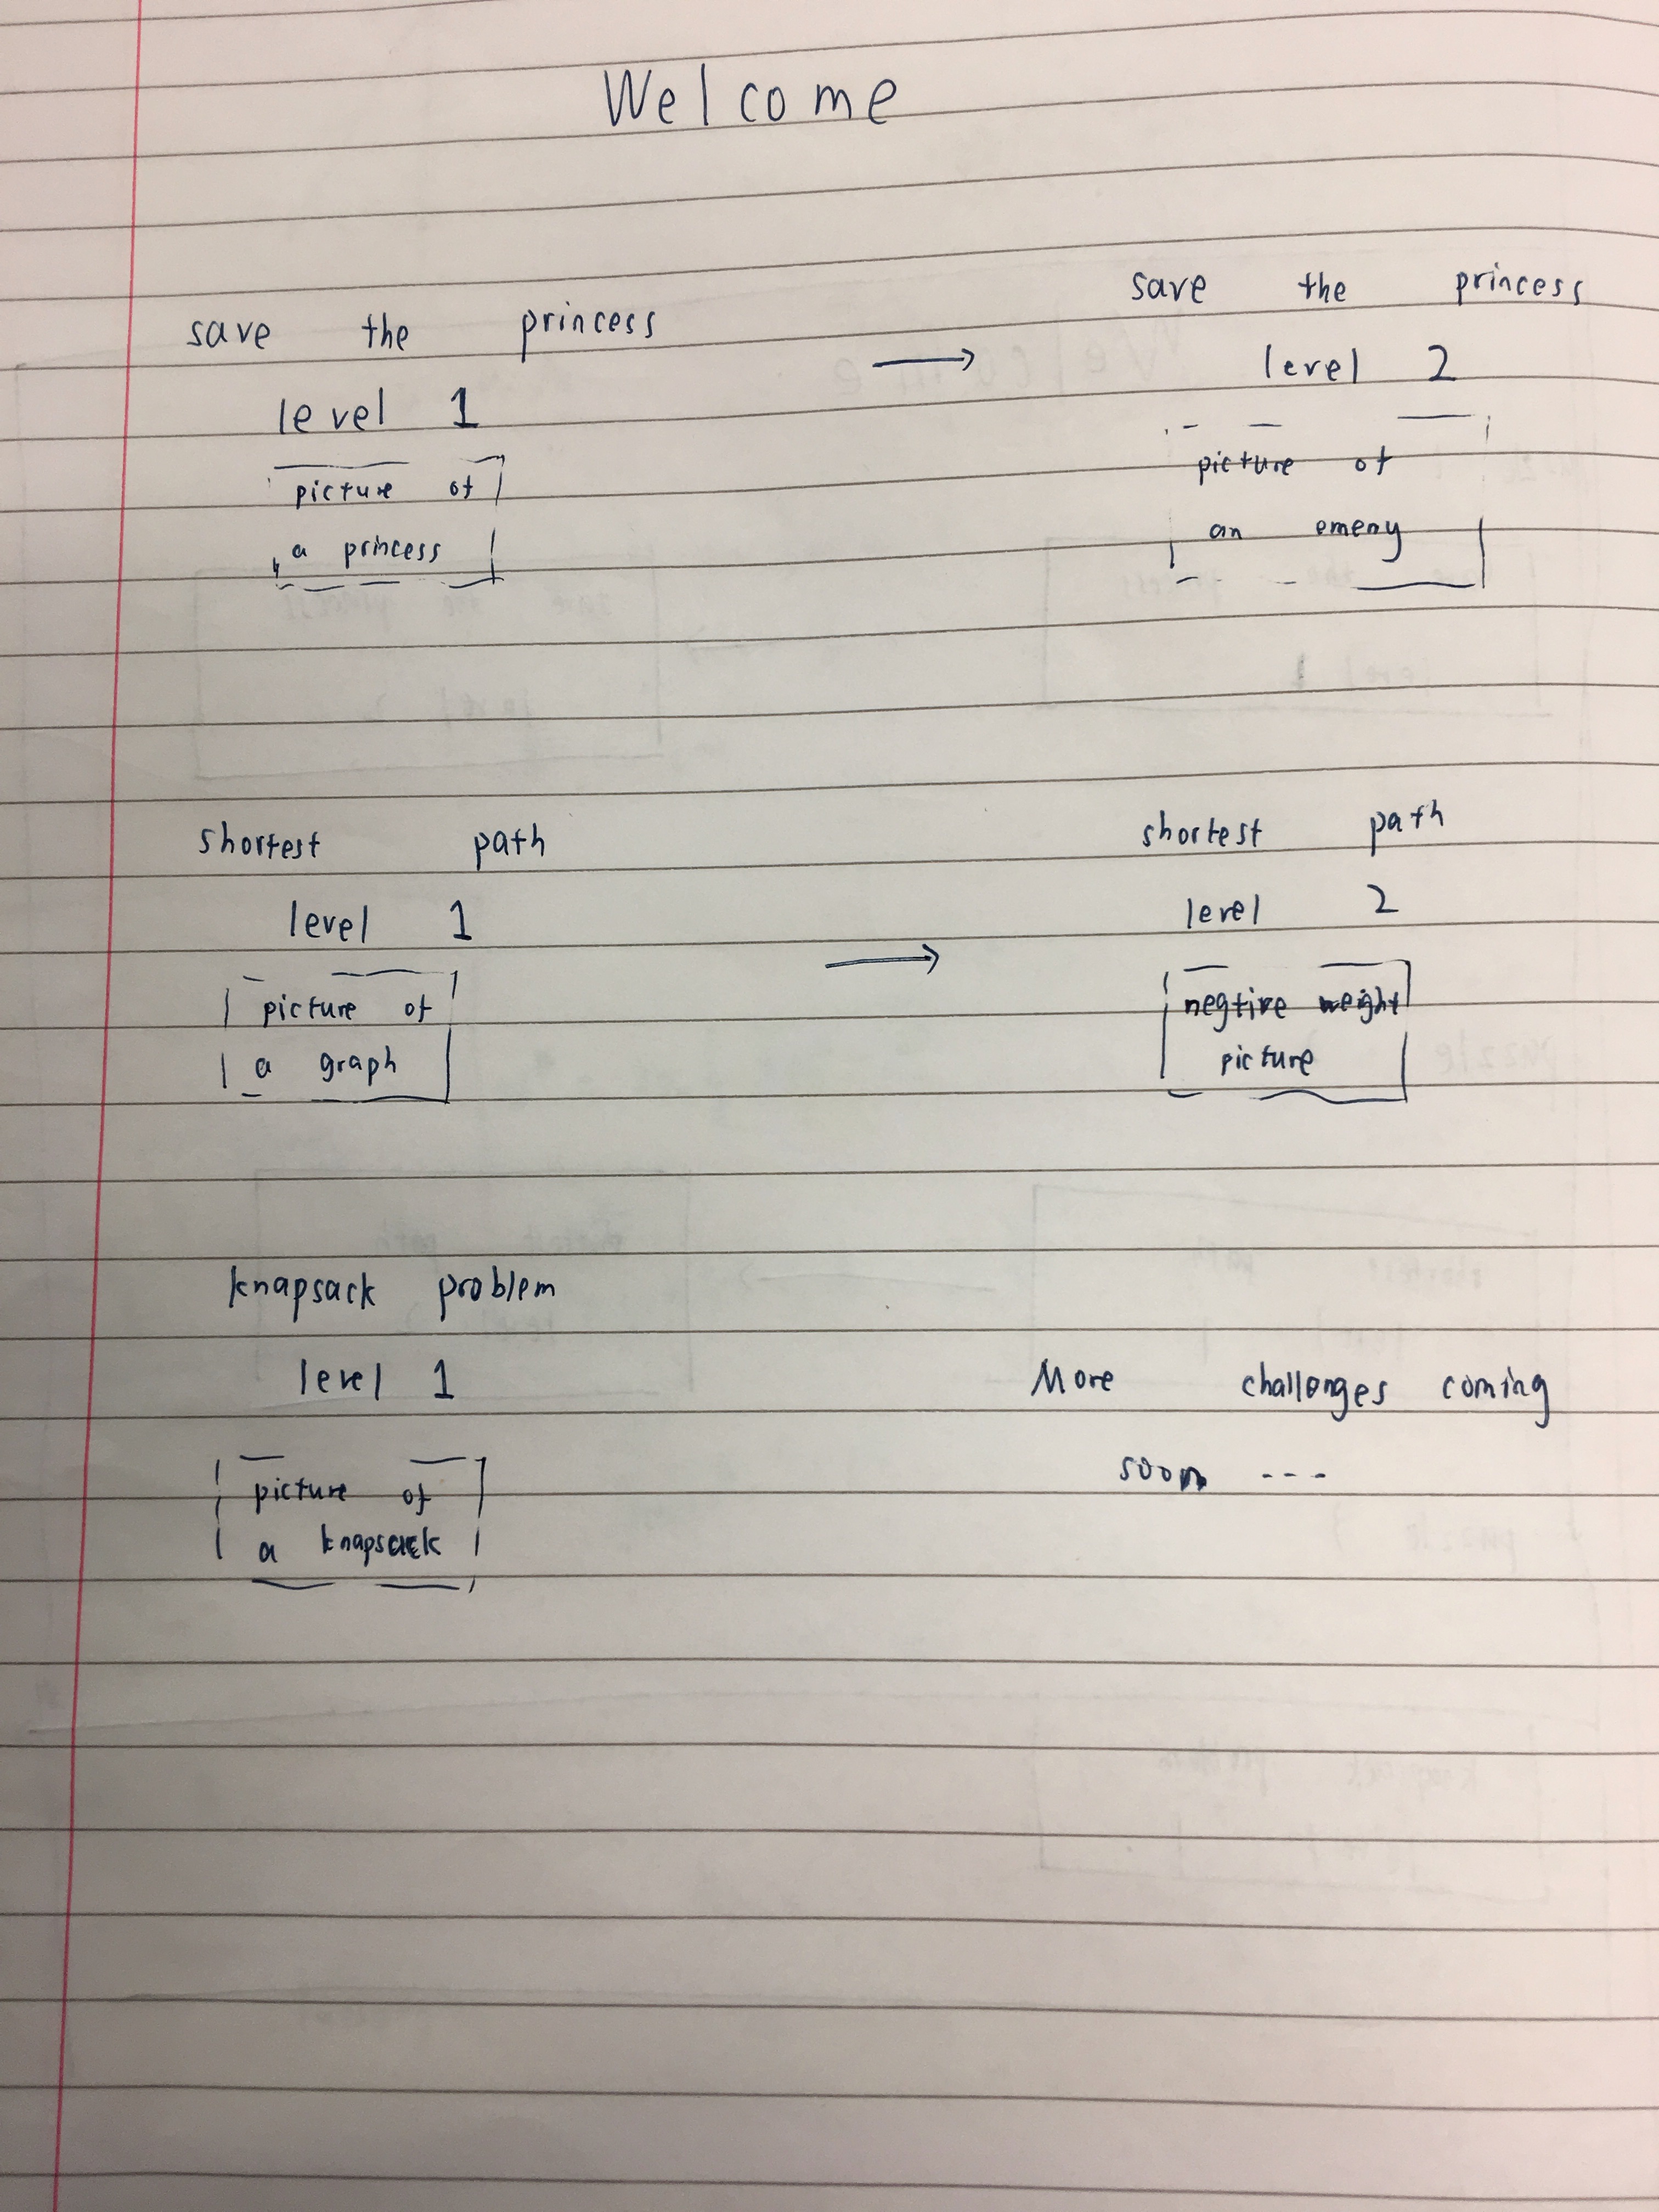 Welcome
save the princess
level 1
picture of
a princess
save the princess
level 2
picture of
an emeny
shortest path
level 1
picture of
a graph
shortest path
level 2
negtive weight
picture
knapsack problem
level 1
picture of
a knapsack
More challenges coming
soon ---